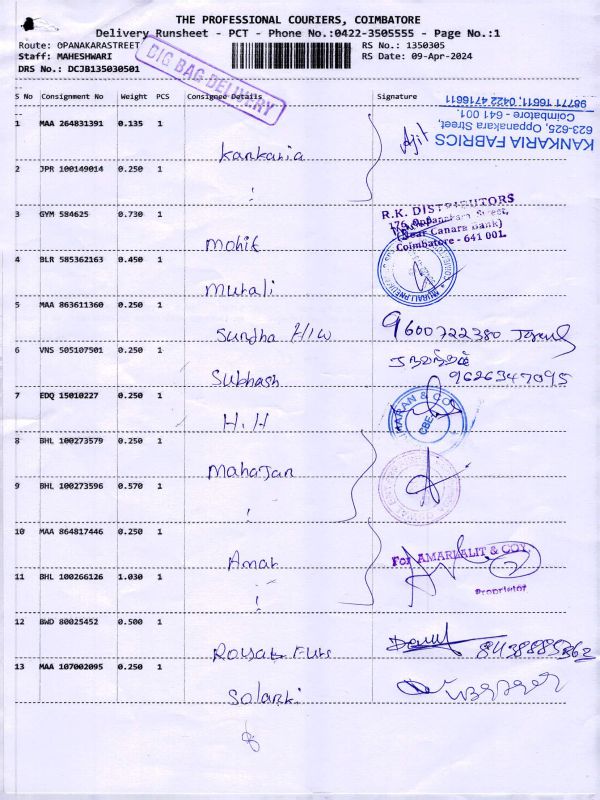 THE PROFESSIONAL COURIERS, COIMBATORE
Delivery Runsheet - PCT - Phone No.:0422-3505555 - Page No.:1
Route: OPANAKARASTREET RS No.: 1350305
Staff: MAHESHWARI RS Date: 09-Apr-2024
DRS No.: DCJB135030501
BIG BAG DELIVERY
S No Consignment No Weight PCS Consignee Details Signature
98771 16611, 0422 4716611
Coimbatore - 641 001.
623-625, Oppanakara Street,
KANKARIA FABRICS
1 MAA 264831391 0.135 1 Kankaria Ajit
2 JPR 100149014 0.250 1 "
R.K. DISTRIBUTORS
176, Oppanakara Street,
(Near Canara Bank)
Coimbatore - 641 001.
3 GYM 584625 0.730 1 Mohit
4 BLR 585362163 0.450 1 Murali
5 MAA 863611360 0.250 1 Sundha H/W 9600722380
6 VNS 505107501 0.250 1 Subhash 9626347095
7 EDQ 15010227 0.250 1 H.H
& COY
CBE
8 BHL 100273579 0.250 1 Mahajan
9 BHL 100273596 0.570 1 "
10 MAA 864817446 0.250 1 Amar
For AMARLALIT & COY,
Proprietor
11 BHL 100266126 1.030 1 "
12 BWD 80025452 0.500 1 Royal Furs
13 MAA 107002095 0.250 1 Solanki